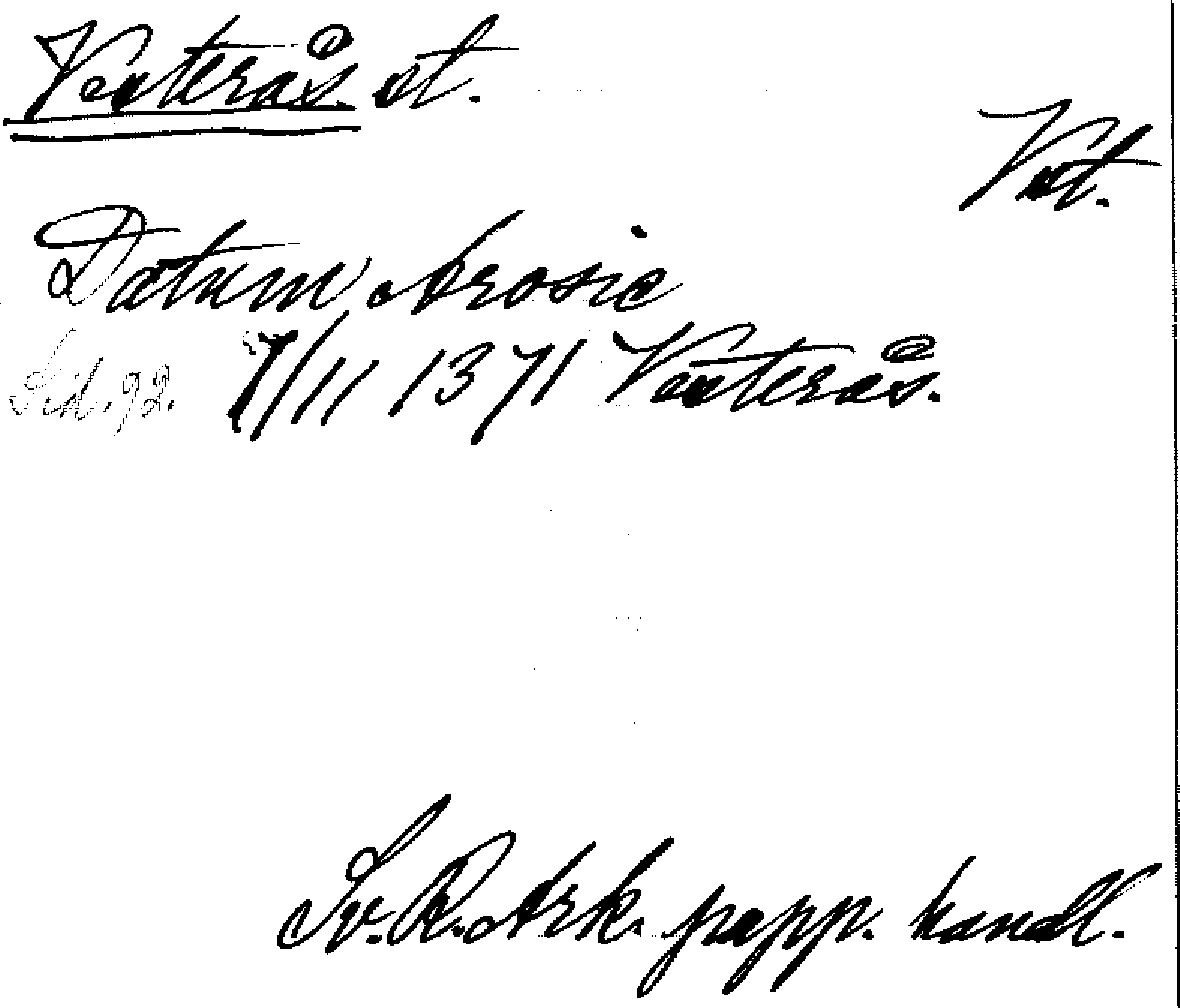 Västerås. st.
Vst.
Datum Arosie
Sid. 92. 7/11 1371 Västerås.
Sv. R. Ark. papp. handl.